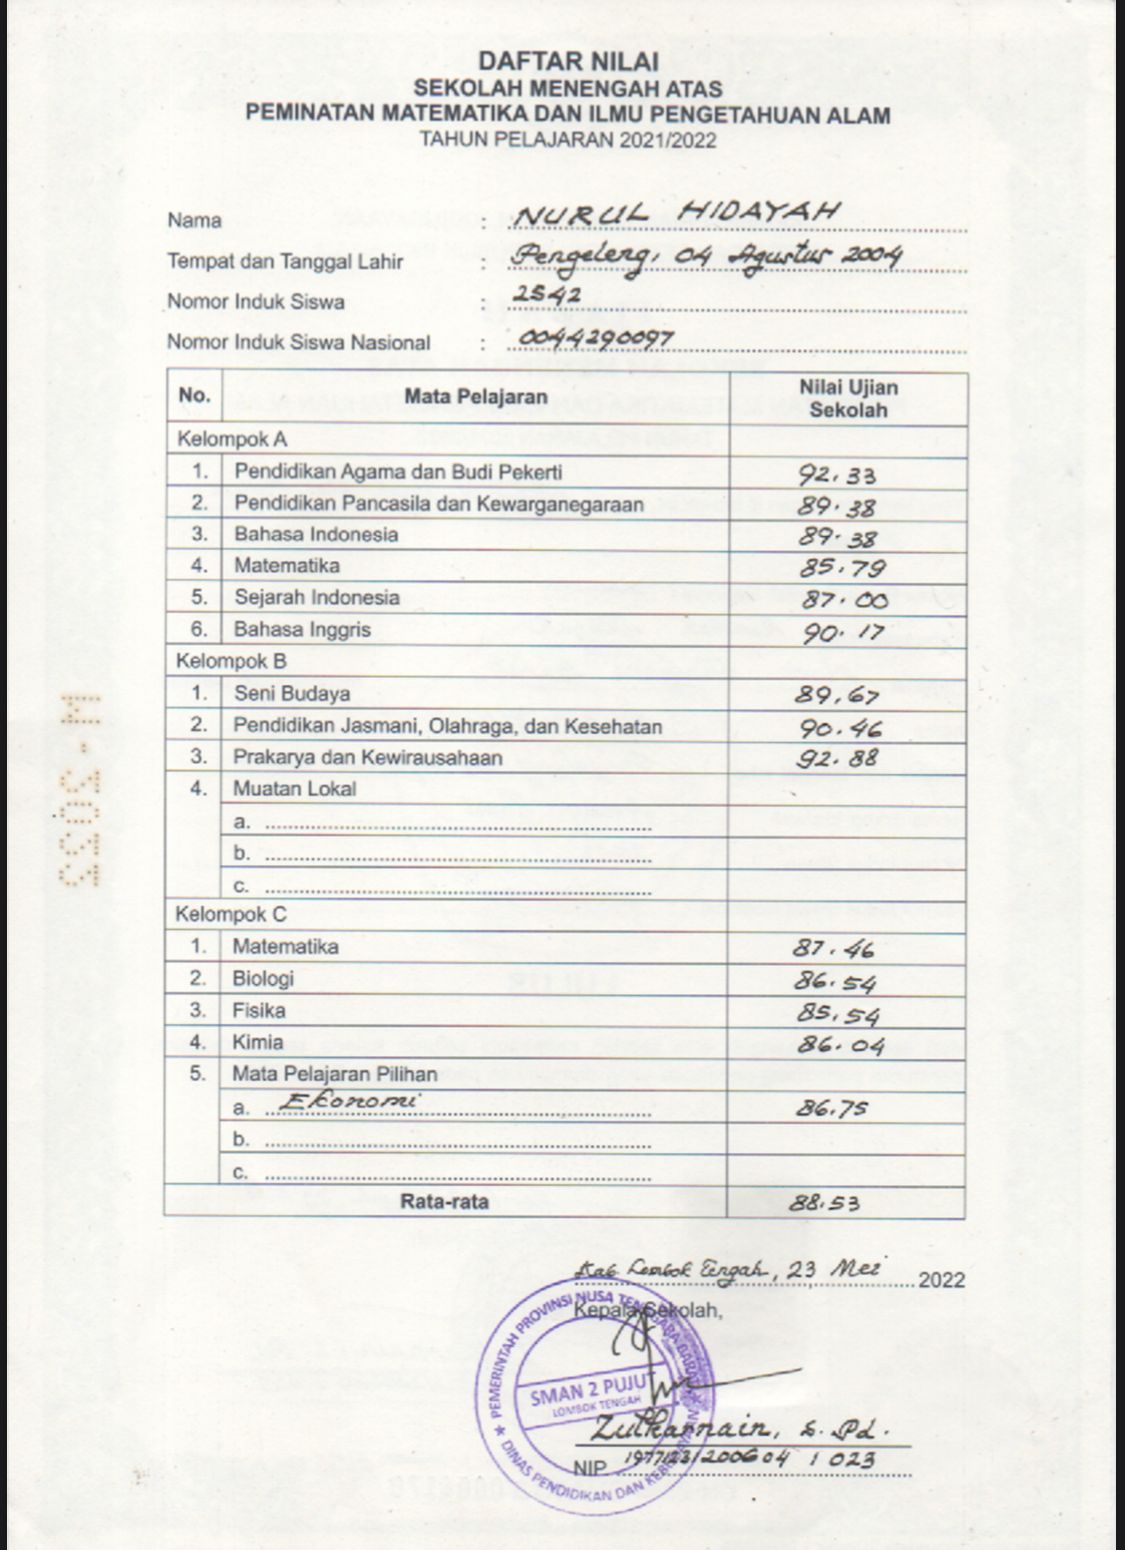 DAFTAR NILAI
SEKOLAH MENENGAH ATAS
PEMINATAN MATEMATIKA DAN ILMU PENGETAHUAN ALAM
TAHUN PELAJARAN 2021/2022
Nama : NURUL HIDAYAH
Tempat dan Tanggal Lahir : Pengeleng, 04 Agustus 2004
Nomor Induk Siswa : 2542
Nomor Induk Siswa Nasional : 0044290097
No. Mata Pelajaran Nilai Ujian Sekolah
Kelompok A
1. Pendidikan Agama dan Budi Pekerti 92,33
2. Pendidikan Pancasila dan Kewarganegaraan 89.38
3. Bahasa Indonesia 89.38
4. Matematika 85,79
5. Sejarah Indonesia 87.00
6. Bahasa Inggris 90.17
Kelompok B
1. Seni Budaya 89,67
2. Pendidikan Jasmani, Olahraga, dan Kesehatan 90.46
3. Prakarya dan Kewirausahaan 92.88
4. Muatan Lokal
a.
b.
c.
Kelompok C
1. Matematika 87.46
2. Biologi 86.54
3. Fisika 85,54
4. Kimia 86.04
5. Mata Pelajaran Pilihan
a. Ekonomi 86.75
b.
c.
Rata-rata 88.53
Kab Lombok Tengah, 23 Mei 2022
Kepala Sekolah,
PEMERINTAH PROVINSI NUSA TENGGARA BARAT
SMAN 2 PUJUT
LOMBOK TENGAH
DINAS PENDIDIKAN DAN KEBUDAYAAN
Zulkarnain, S.Pd.
NIP 1 023
M-2022